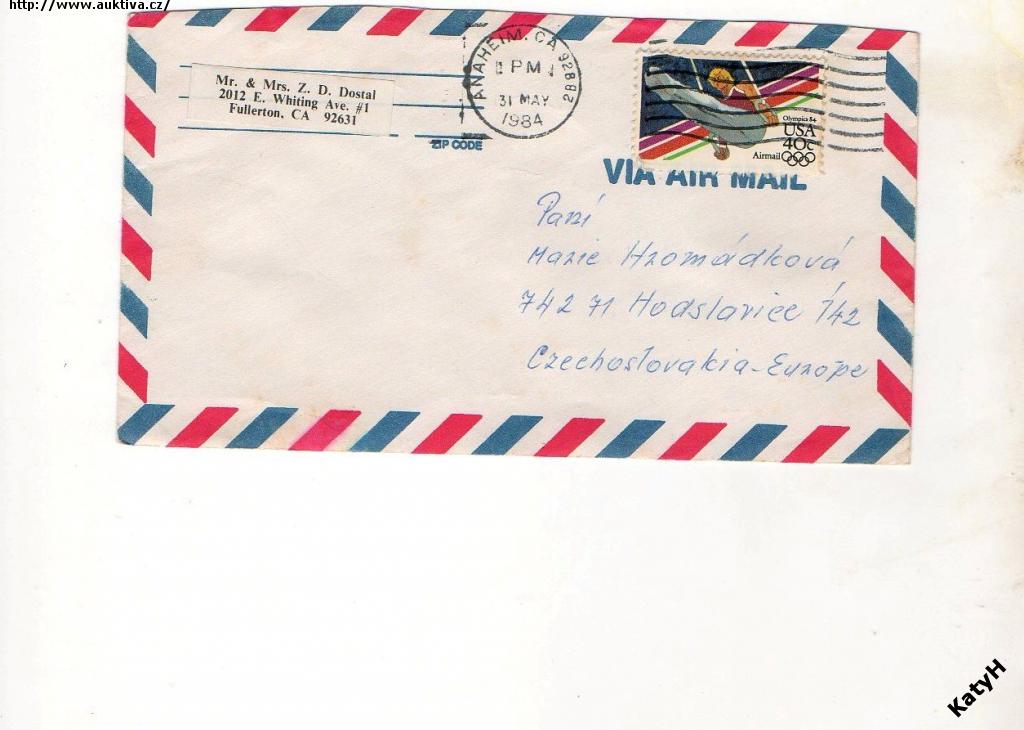 http://www.auktiva.cz/
Mr. & Mrs. Z. D. Dostal
2012 E. Whiting Ave. #1
Fullerton, CA 92631
ZIP CODE
ANAHEIM, CA 92882
PM
31 MAY
1984
Olympics 84
USA
40c
Airmail
VIA AIR MAIL
Paní
Marie Hromádková
742 71 Hodslavice 142
Czechoslovakia-Europe
KatyH